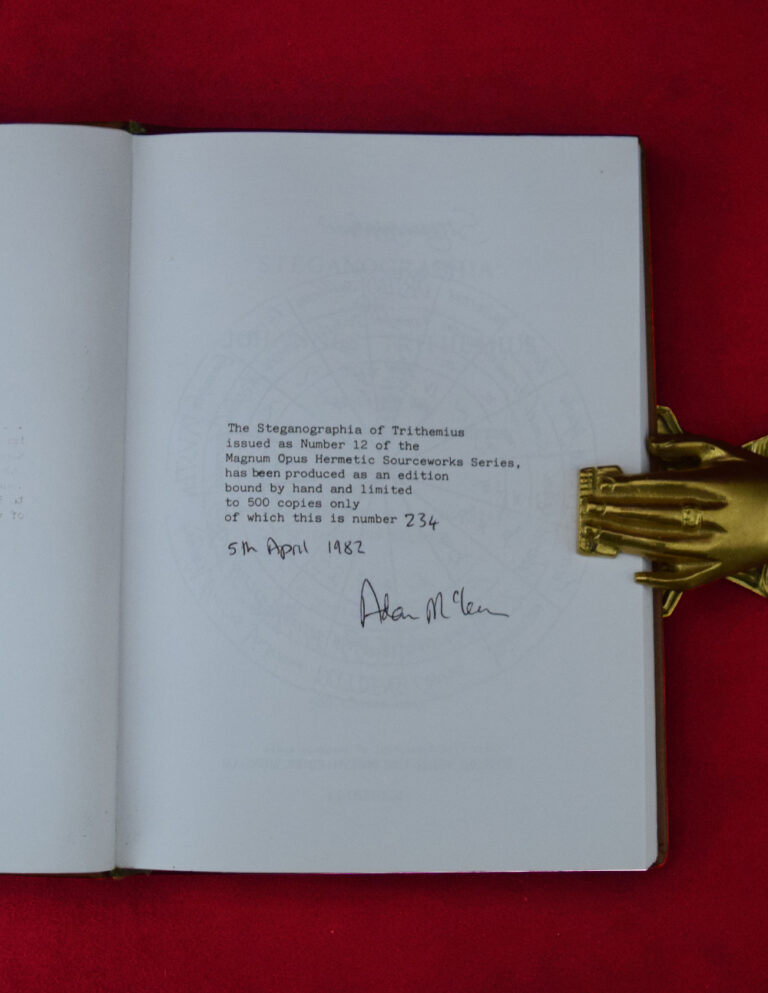 The Steganographia of Trithemius
issued as Number 12 of the
Magnum Opus Hermetic Sourceworks Series,
has been produced as an edition
bound by hand and limited
to 500 copies only
of which this is number 234
5th April 1982
Adam McLean